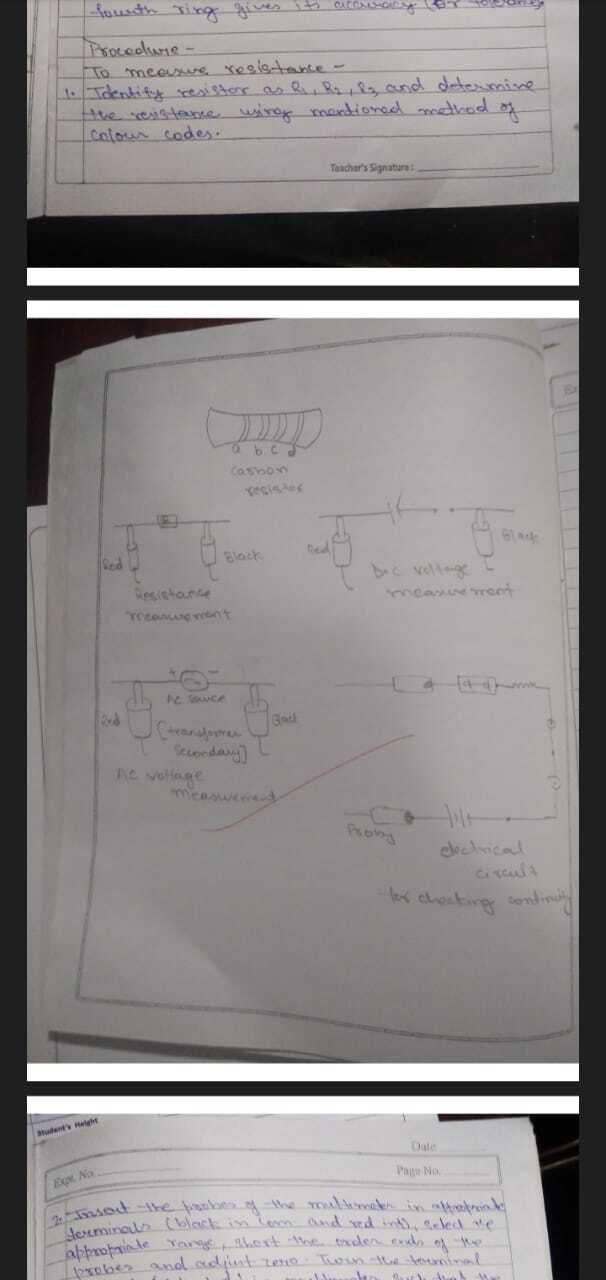 fourth ring gives its accuracy (or tolerance)
Procedure -
To measure resistance -
1. Identify resistor as R1, R2, R3 and determine
the resistance using mentioned method of
colour codes.
Teacher's Signature :
a b c d
Carbon
resistor
R
Red
Black
Resistance
measurement
Red
Black
D.C voltage
measurement
+ -
AC source
Red
[transformer
Secondary]
Black
AC voltage
measurement
Probe
electrical
circuit
for checking continuity
Student's Height
Date
Expt. No.
Page No.
2. Insert the probes of the multimeter in appropriate
terminals (black in com and red in), select the
appropriate range, short the ends of the
probes and adjust zero. Turn the terminal